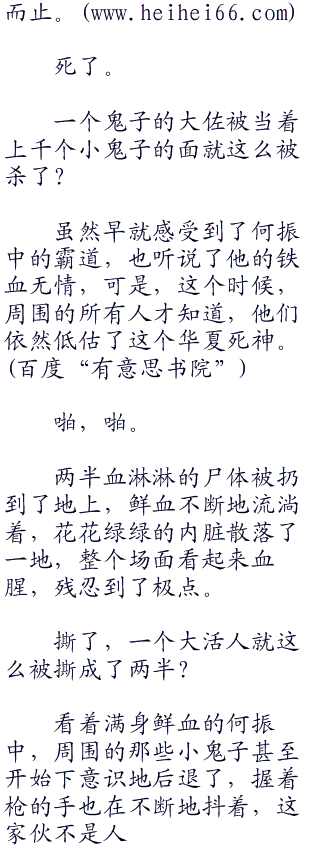 而止。(www.heihei66.com)
死了。
一个鬼子的大佐被当着
上千个小鬼子的面就这么被
杀了?
虽然早就感受到了何振
中的霸道，也听说了他的铁
血无情，可是，这个时候，
周围的所有人才知道，他们
依然低估了这个华夏死神。
(百度“有意思书院”)
啪，啪。
两半血淋淋的尸体被扔
到了地上，鲜血不断地流淌
着，花花绿绿的内脏散落了
一地，整个场面看起来血
腥，残忍到了极点。
撕了，一个大活人就这
么被撕成了两半?
看着满身鲜血的何振
中，周围的那些小鬼子甚至
开始下意识地后退了，握着
枪的手也在不断地抖着，这
家伙不是人